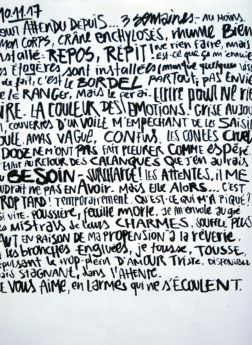 10.11.17
ATTENDU DEPUIS... 3 semaines - au moins,
MON CORPS, CRÂNE ENCHYLOSÉS, RHUME BIEN
INSTALLÉ. REPOS, RÉPIT! ne rien faire, mais
est-ce que ça m'ennuie
les étagères sont installées, manque quelques
de fait, c'est le BORDEL PARTOUT, PAS ENVIE
DE RANGER, MAIS le ferai. Écrire pour ne rien
DIRE. LA COULEUR DES ÉMOTIONS! GRISE AUJOURD
COUVERTES D'UN VOILE M'EMPÊCHANT DE LES SAISIR
MAIS VAGUE, CONFINS, LES CONTES CHOSES
NE M'ONT PAS FAIT PLEURER COMME ESPÉRÉ
AU RETOUR DES CALANQUES QUE J'EN AURAIS
BESOIN - SURCHARGE! LES ATTENTES, IL ME
FAUDRAIT NE PAS EN AVOIR. MAIS ELLE ALORS... C'EST
TROP TARD! TEMPORAIREMENT. QU'EST-CE QUI M'A PIQUÉ?
SI VITE. POUSSIÈRE, FEUILLE MORTE. JE M'ENVOLE AU GRÉ
des MISTRALS de leurs CHARMES. SOUFFLE PLUS
HAUT EN RAISON DE MA PROPENSION À LA RÊVERIE.
les bronches engluées, je tousse, TOUSSE
EXPULSANT le trop-plein D'AMOUR TRISTE. DISPONIBLE
MAIS STAGNANT, dans l'ATTENTE.
JE VOUS AIME, EN LARMES QUI NE S'ÉCOULENT.